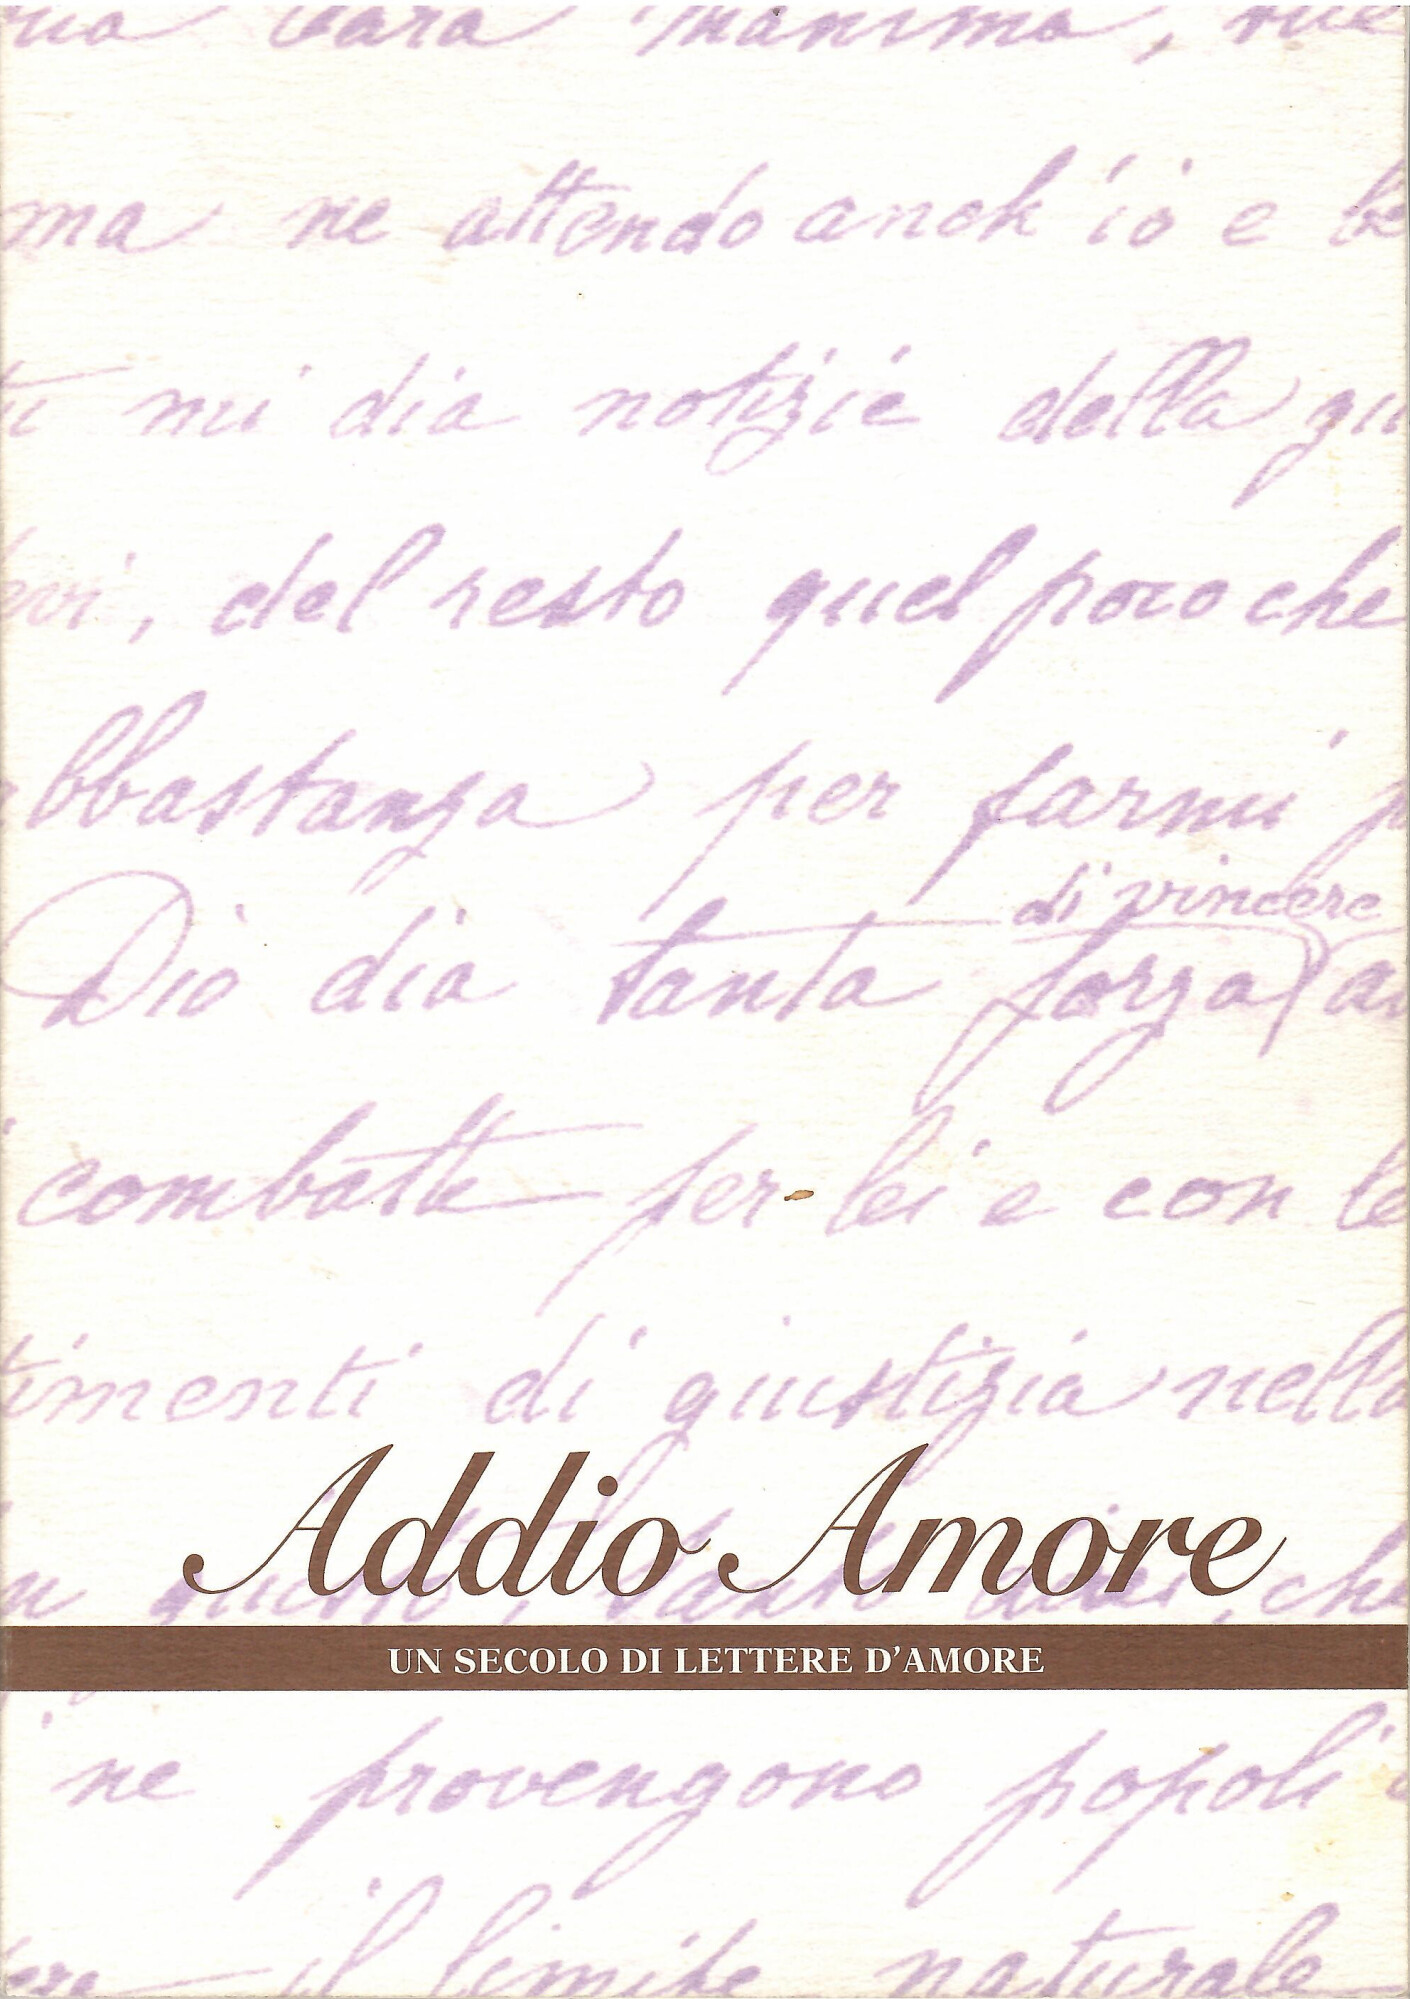 cara mamma,
ma ne attendo anch'io e be
ti mi dia notizie della gu
evi, del resto quel poco che
bbastanza per farmi p
di vincere
Dio dia tanta forza
combatte per lei e con le
timenti di giustizia nella
Addio Amore
questo, che
UN SECOLO DI LETTERE D'AMORE
ne provengono popoli
il limite naturale